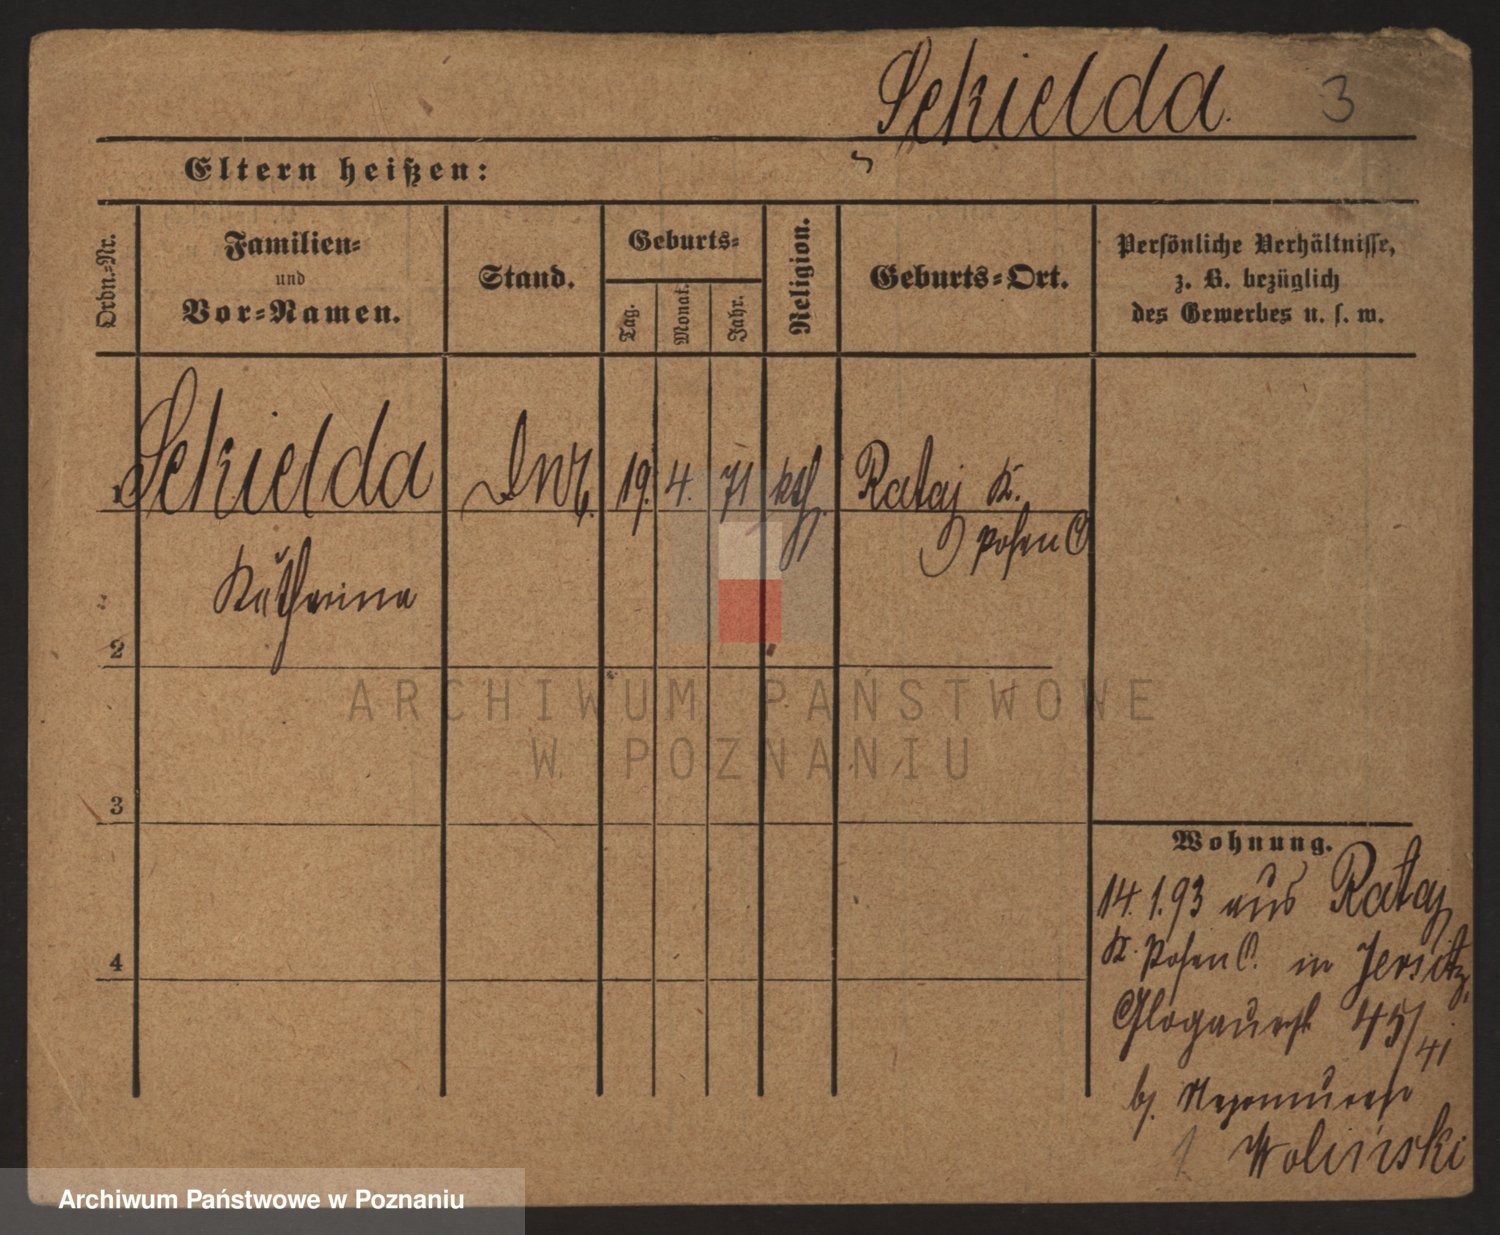 Sekielda. 3
Eltern heißen:
Ordn.-Nr.
Familien-
und
Vor-Namen.
Stand.
Geburts-
Tag.
Monat.
Jahr.
Religion.
Geburts-Ort.
Persönliche Verhältnisse,
z. B. bezüglich
des Gewerbes u. s. w.
1 Sekielda 19. 4. 71 kth. Rataj K.
Posen O
Katharina
2
3
4
Wohnung.
14.1.93 aus Rataj
K. Posen O. in Jersitz,
Glogauerst 45/41
b/.
Woliński
ARCHIWUM PAŃSTWOWE
W POZNANIU
Archiwum Państwowe w Poznaniu